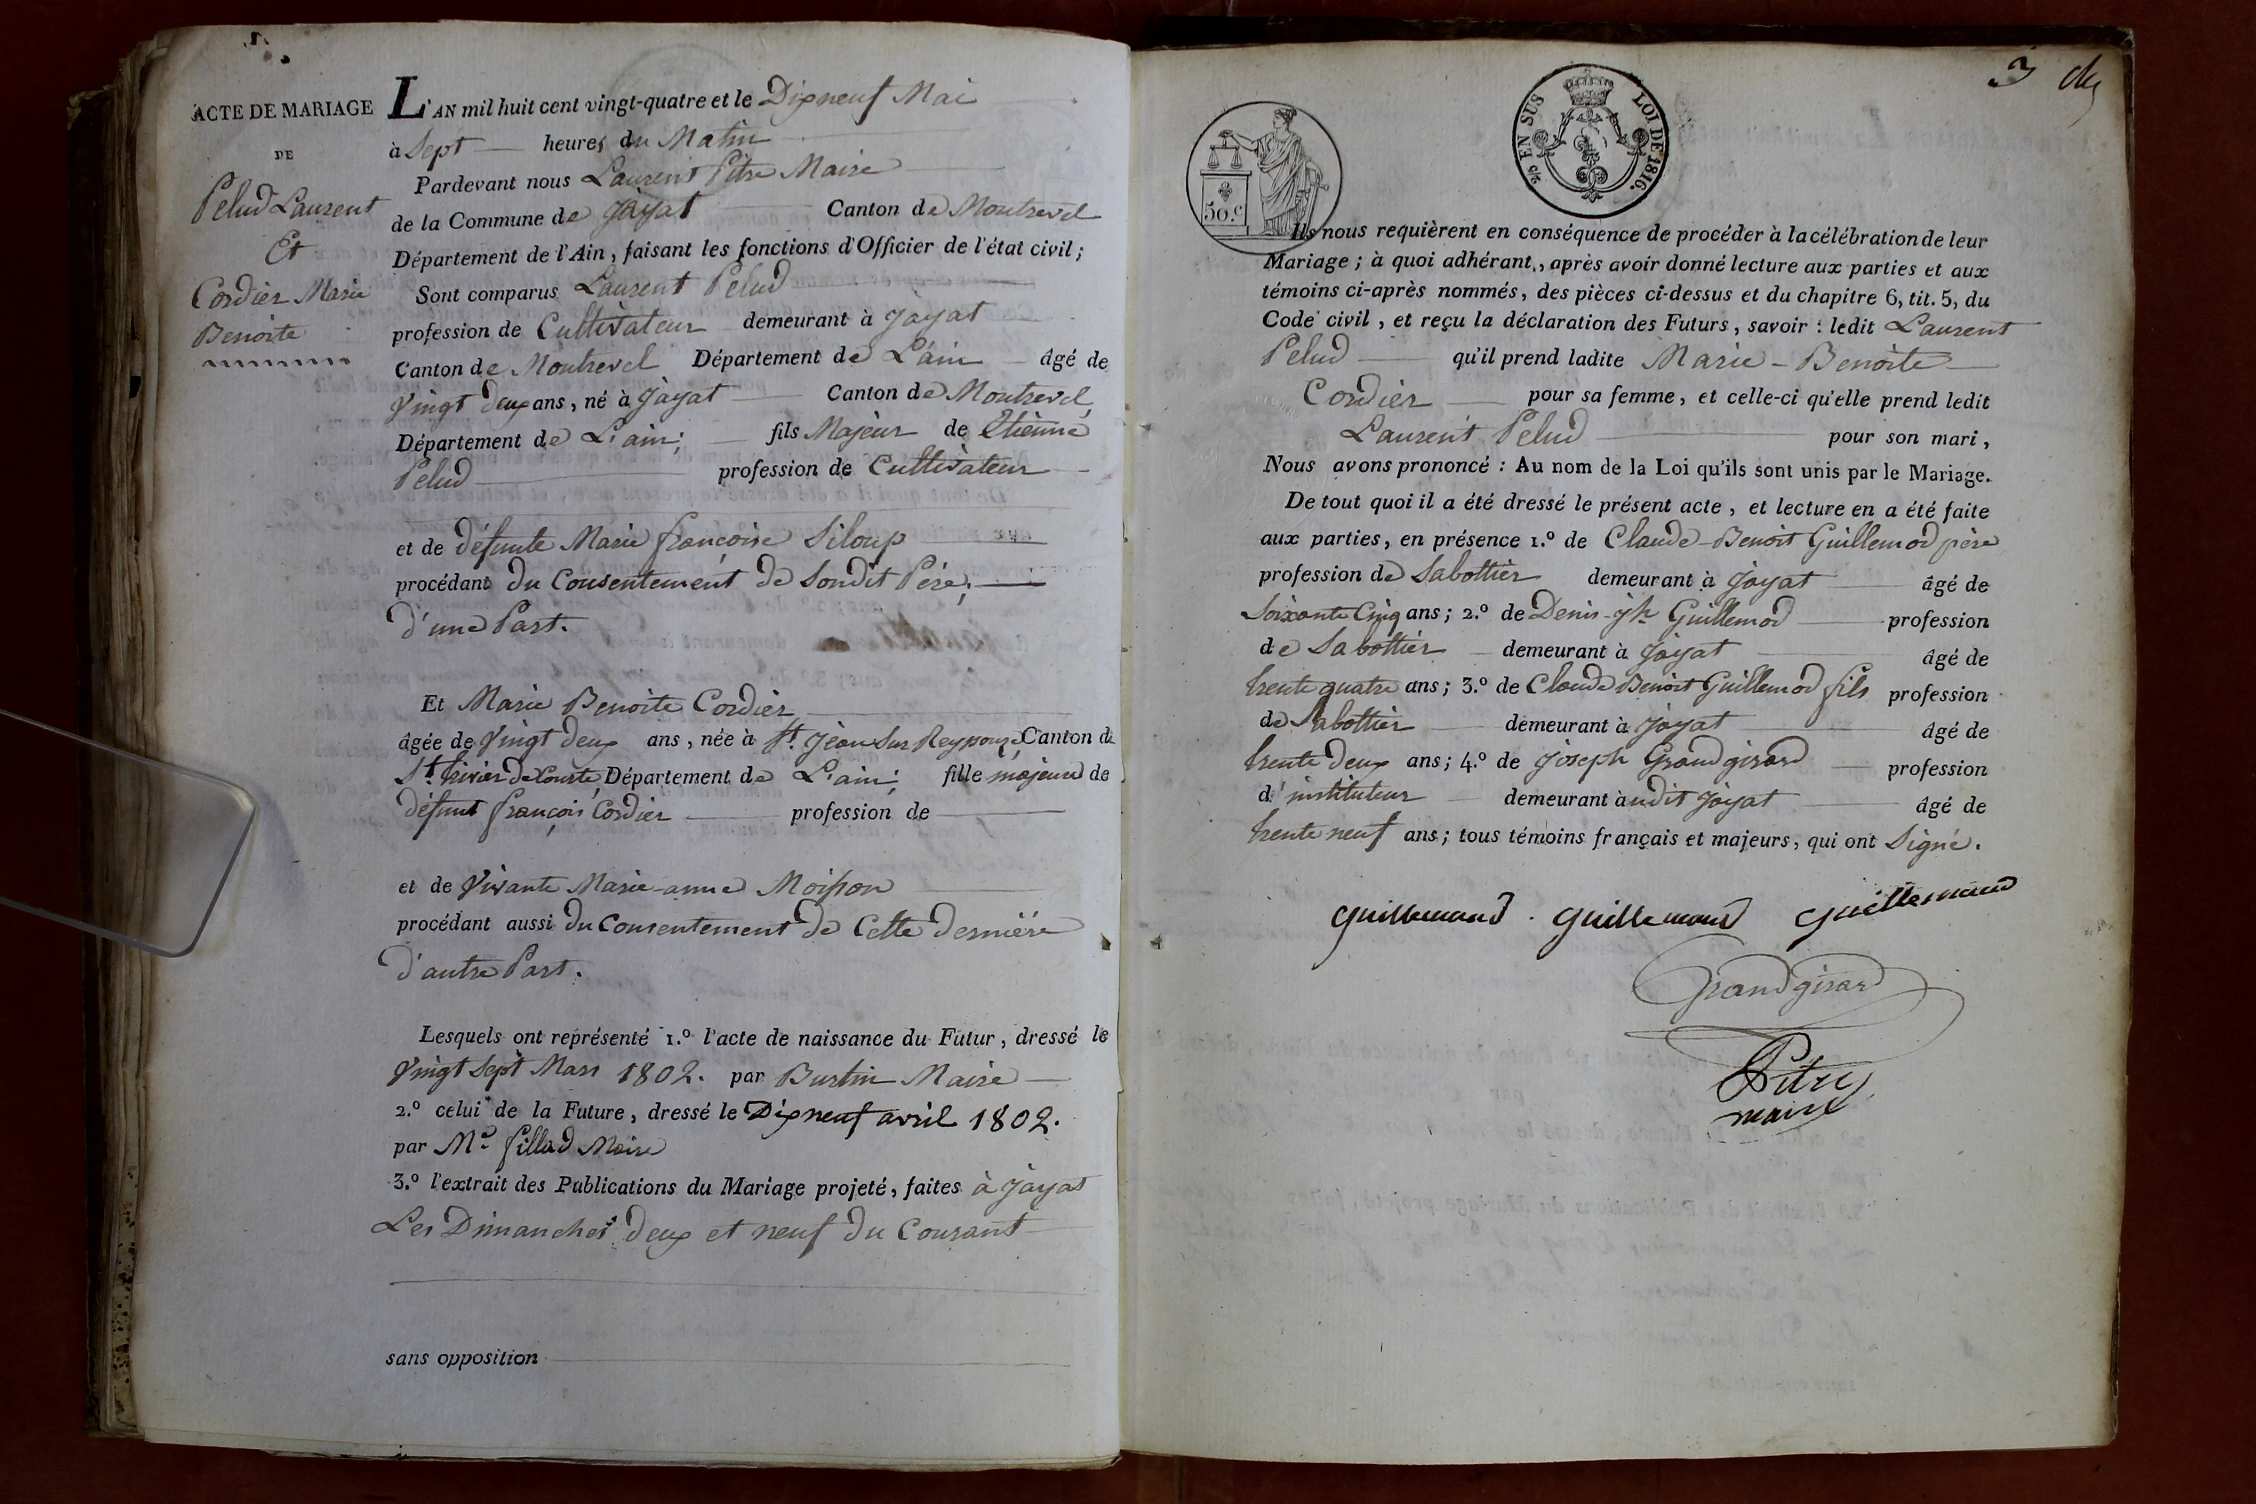 ACTE DE MARIAGE
DE
Pelud Laurent
Et
Cordier Marie
Benoite
L'AN mil huit cent vingt-quatre et le Dix neuf Mai
à Sept heures du Matin
Pardevant nous Laurent Pitre Maire
de la Commune de Jayat Canton de Montrevel
Département de l'Ain, faisant les fonctions d'Officier de l'état civil;
Sont comparus Laurent Pelud
profession de Cultivateur demeurant à Jayat
Canton de Montrevel Département de L'ain âgé de
Vingt deux ans, né à Jayat Canton de Montrevel
Département de L'ain; fils Majeur de Etienne
Pelud profession de Cultivateur
et de défunte Marie françoise Siloup
procédant du Consentement de Sondit Père;
d'une Part.
Et Marie Benoite Cordier
âgée de Vingt deux ans, née à St. Jean Sur Reyssouze Canton de
St. trivier de Courte, Département de L'ain; fille majeure de
défunt françois Cordier profession de
et de Vivante Marie-anne Moisson
procédant aussi du Consentement de Cette dernière
d'autre Part.
Lesquels ont représenté 1.º l'acte de naissance du Futur, dressé le
Vingt Sept Mars 1802. par Burtin Maire
2.º celui de la Future, dressé le Dix neuf avril 1802.
par Mr. fillod Maire
3.º l'extrait des Publications du Mariage projeté, faites à Jayat
Les Dimanches deux et neuf du Courant
sans opposition
3
50.c
EN SUS
LOI DE 1816.
Ils nous requièrent en conséquence de procéder à la célébration de leur
Mariage; à quoi adhérant, après avoir donné lecture aux parties et aux
témoins ci-après nommés, des pièces ci-dessus et du chapitre 6, tit. 5, du
Code civil, et reçu la déclaration des Futurs, savoir: ledit Laurent
Pelud qu'il prend ladite Marie-Benoite
Cordier pour sa femme, et celle-ci qu'elle prend ledit
Laurent Pelud pour son mari,
Nous avons prononcé: Au nom de la Loi qu'ils sont unis par le Mariage.
De tout quoi il a été dressé le présent acte, et lecture en a été faite
aux parties, en présence 1.º de Claude-Benoit Guillemod père
profession de Sabottier demeurant à Jayat âgé de
Soixante Cinq ans; 2.º de Denis-jh Guillemod profession
de Sabottier demeurant à Jayat âgé de
trente quatre ans; 3.º de Claude Benoit Guillemod fils profession
de Sabottier demeurant à Jayat âgé de
trente deux ans; 4.º de Joseph Grandgirard profession
d'instituteur demeurant àudit Jayat âgé de
trente neuf ans; tous témoins français et majeurs, qui ont Signé.
guillemaud . guillemaud guillemaud
Grandgirard
Pitre
maire